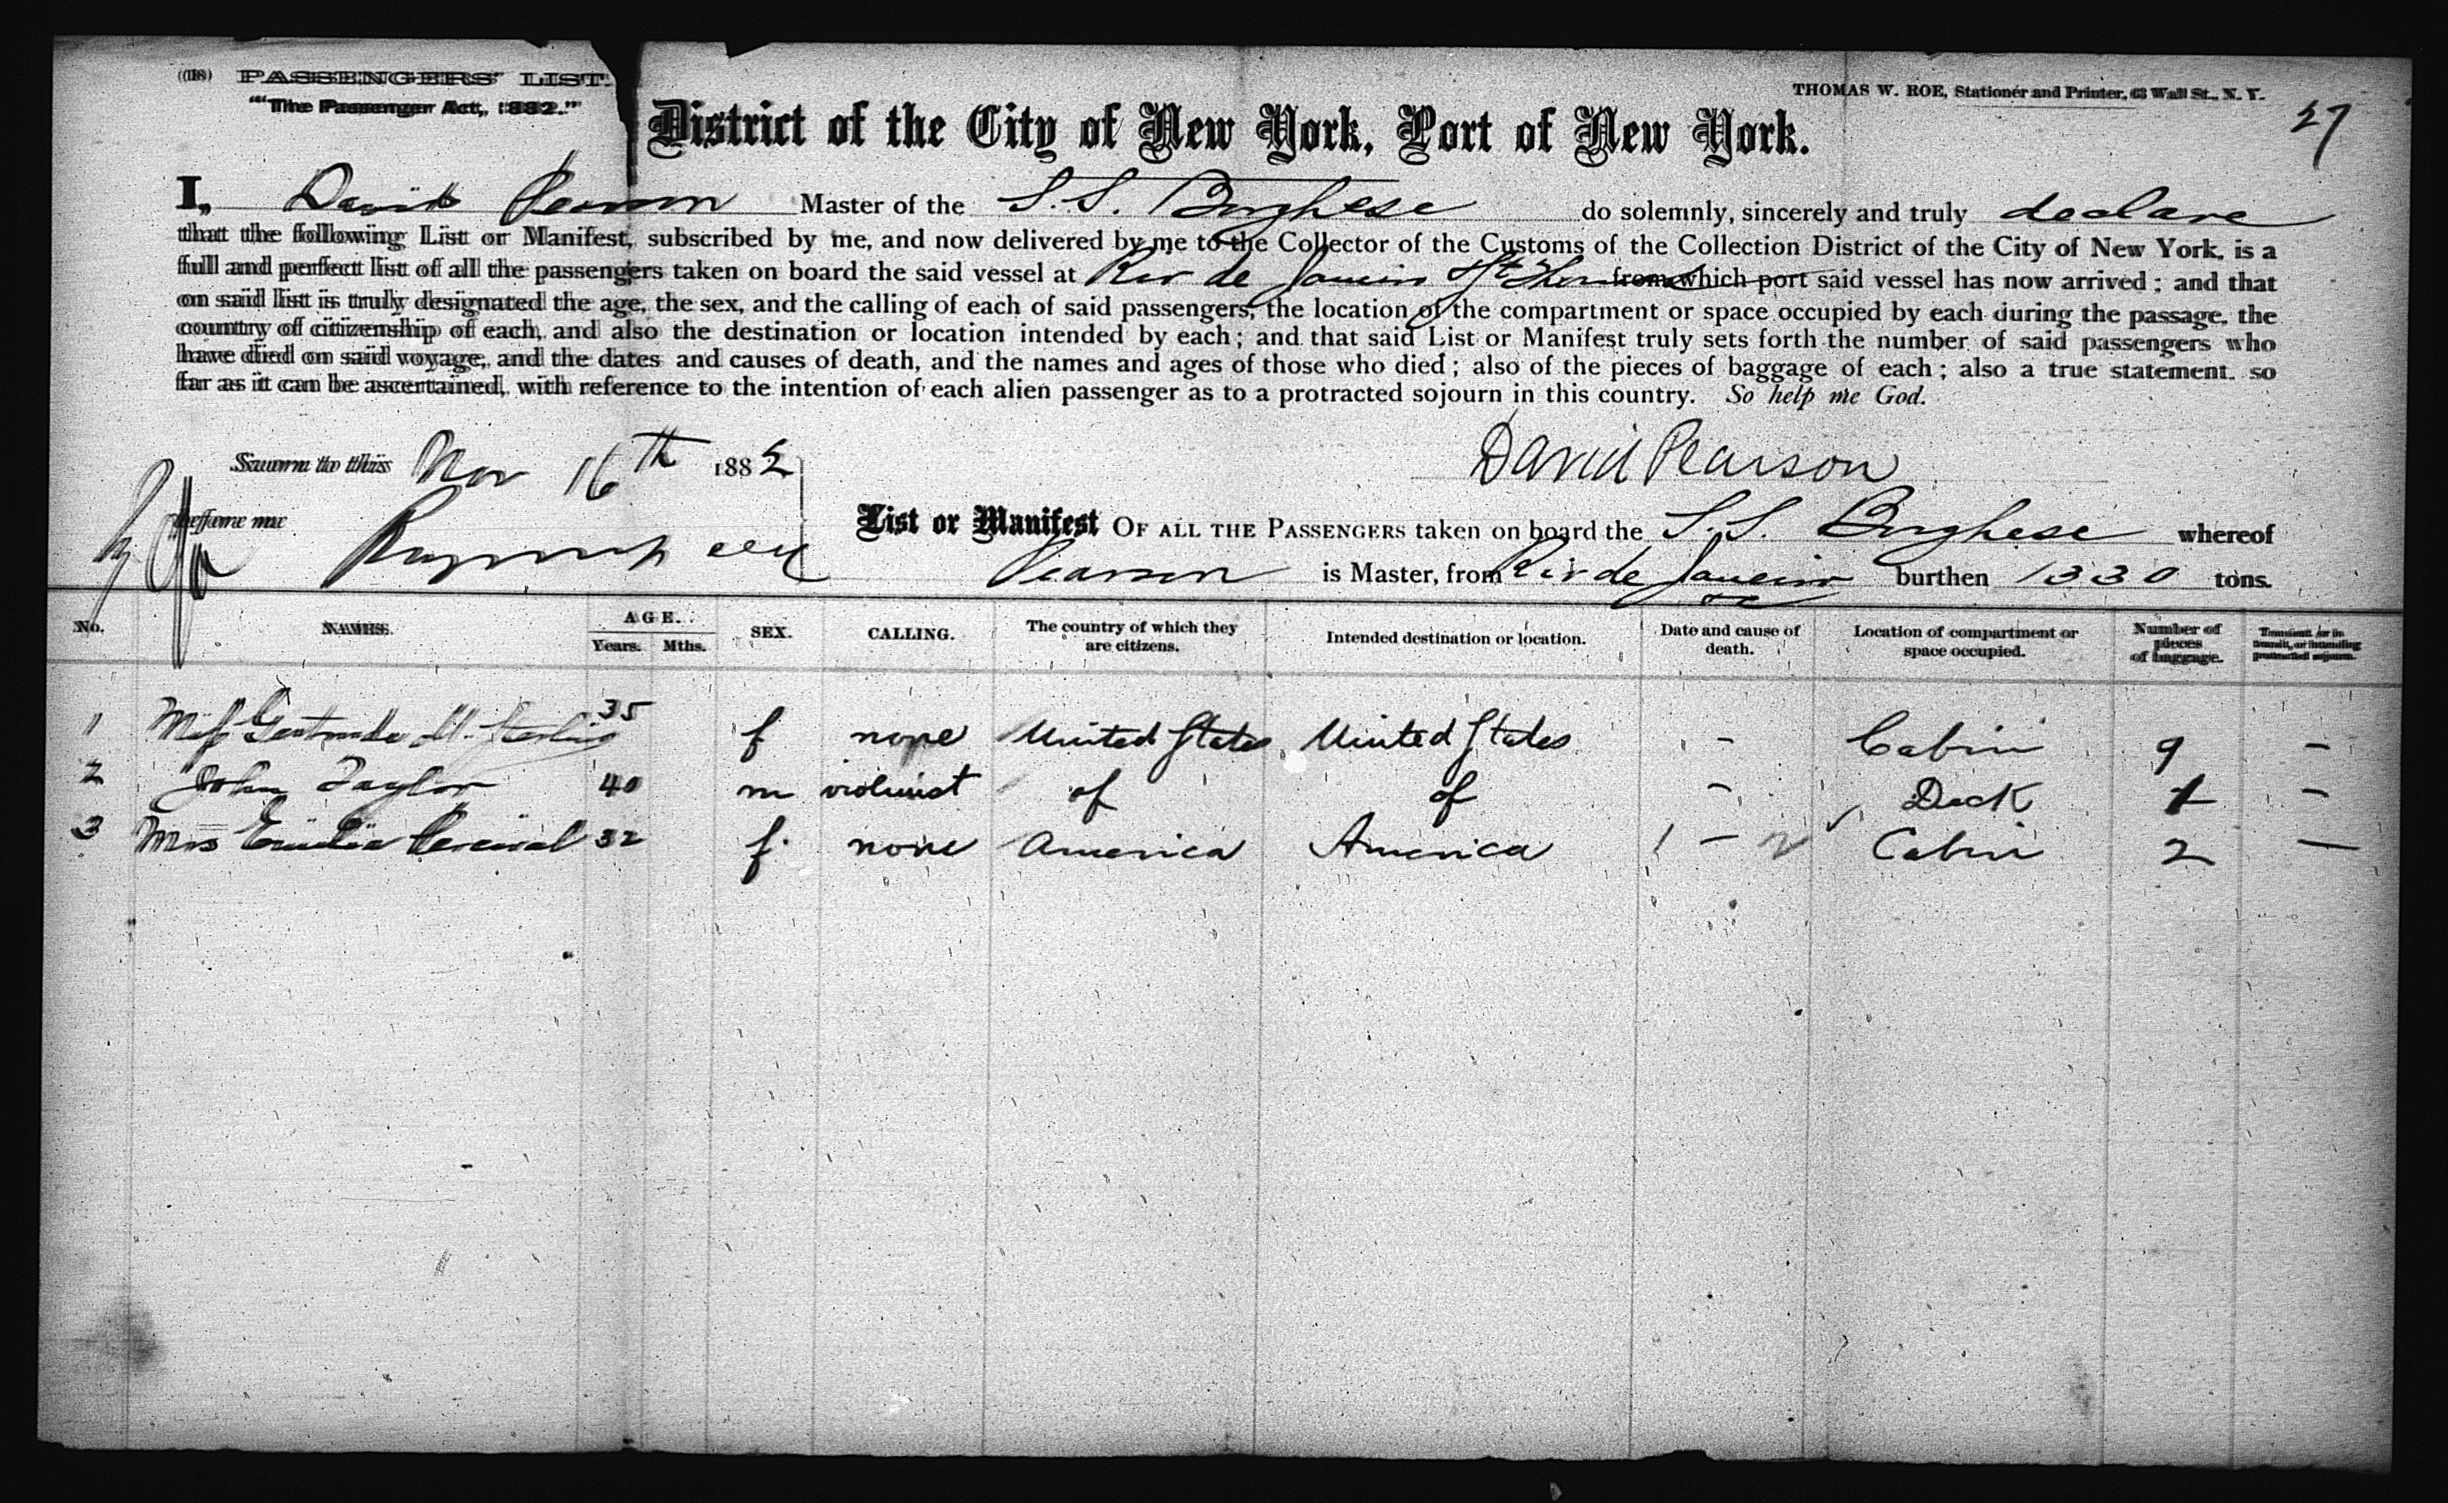 (18) PASSENGERS' LIST.
"The Passenger Act, 1882."
THOMAS W. ROE, Stationer and Printer, 63 Wall St., N. Y.
27
District of the City of New York, Port of New York.
I, David Pearson Master of the S.S. Borghese do solemnly, sincerely and truly declare
that the following List or Manifest, subscribed by me, and now delivered by me to the Collector of the Customs of the Collection District of the City of New York, is a
full and perfect list of all the passengers taken on board the said vessel at Rio de Janeiro & St Thomas from which port said vessel has now arrived; and that
on said list is truly designated the age, the sex, and the calling of each of said passengers, the location of the compartment or space occupied by each during the passage, the
country of citizenship of each, and also the destination or location intended by each; and that said List or Manifest truly sets forth the number of said passengers who
have died on said voyage, and the dates and causes of death, and the names and ages of those who died; also of the pieces of baggage of each; also a true statement, so
far as it can be ascertained, with reference to the intention of each alien passenger as to a protracted sojourn in this country. So help me God.
Sworn to this Nov 16th 1882
David Pearson
before me
List or Manifest OF ALL THE PASSENGERS taken on board the S.S. Borghese whereof
Pearson is Master, from Rio de Janeiro burthen 1330 tons.
No. NAMES. AGE. Years. Mths. SEX. CALLING. The country of which they are citizens. Intended destination or location. Date and cause of death. Location of compartment or space occupied. Number of pieces of baggage. Transient or in transit, or intending protracted sojourn.
1 Miss Gertrude H. Sterling 35 f none United States United States - Cabin 9 -
2 John Taylor 40 m violinist of of - Deck 1 -
3 Mrs Emilia Percival 32 f. none America America - Cabin 2 -